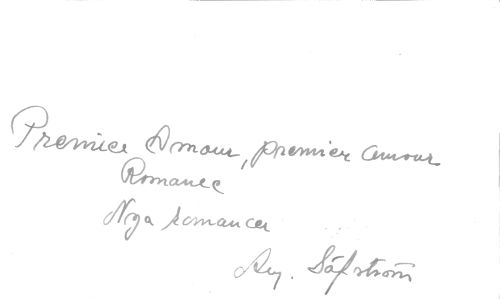 Premice Amour, premier amour
Romance
Nya romancer
Säfström